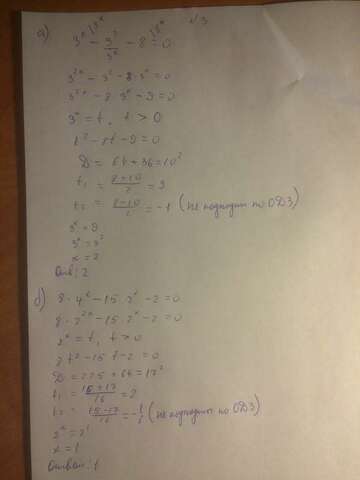 №3
а) 3^x - 3^2/3^x - 8 = 0
3^{2x} - 3^2 - 8·3^x = 0
3^{2x} - 8·3^x - 9 = 0
3^x = t, t > 0
t^2 - 8t - 9 = 0
D = 64 + 36 = 10^2
t_1 = (8+10)/2 = 9
t_2 = (8-10)/2 = -1 (не подходит по ОДЗ)
3^x = 9
3^x = 3^2
x = 2
Отв: 2
б) 8·4^x - 15·2^x - 2 = 0
8·2^{2x} - 15·2^x - 2 = 0
2^x = t, t > 0
8t^2 - 15t - 2 = 0
D = 225 + 64 = 17^2
t_1 = (15+17)/16 = 2
t_2 = (15-17)/16 = -1/8 (не подходит по ОДЗ)
2^x = 2^1
x = 1
Ответ: 1